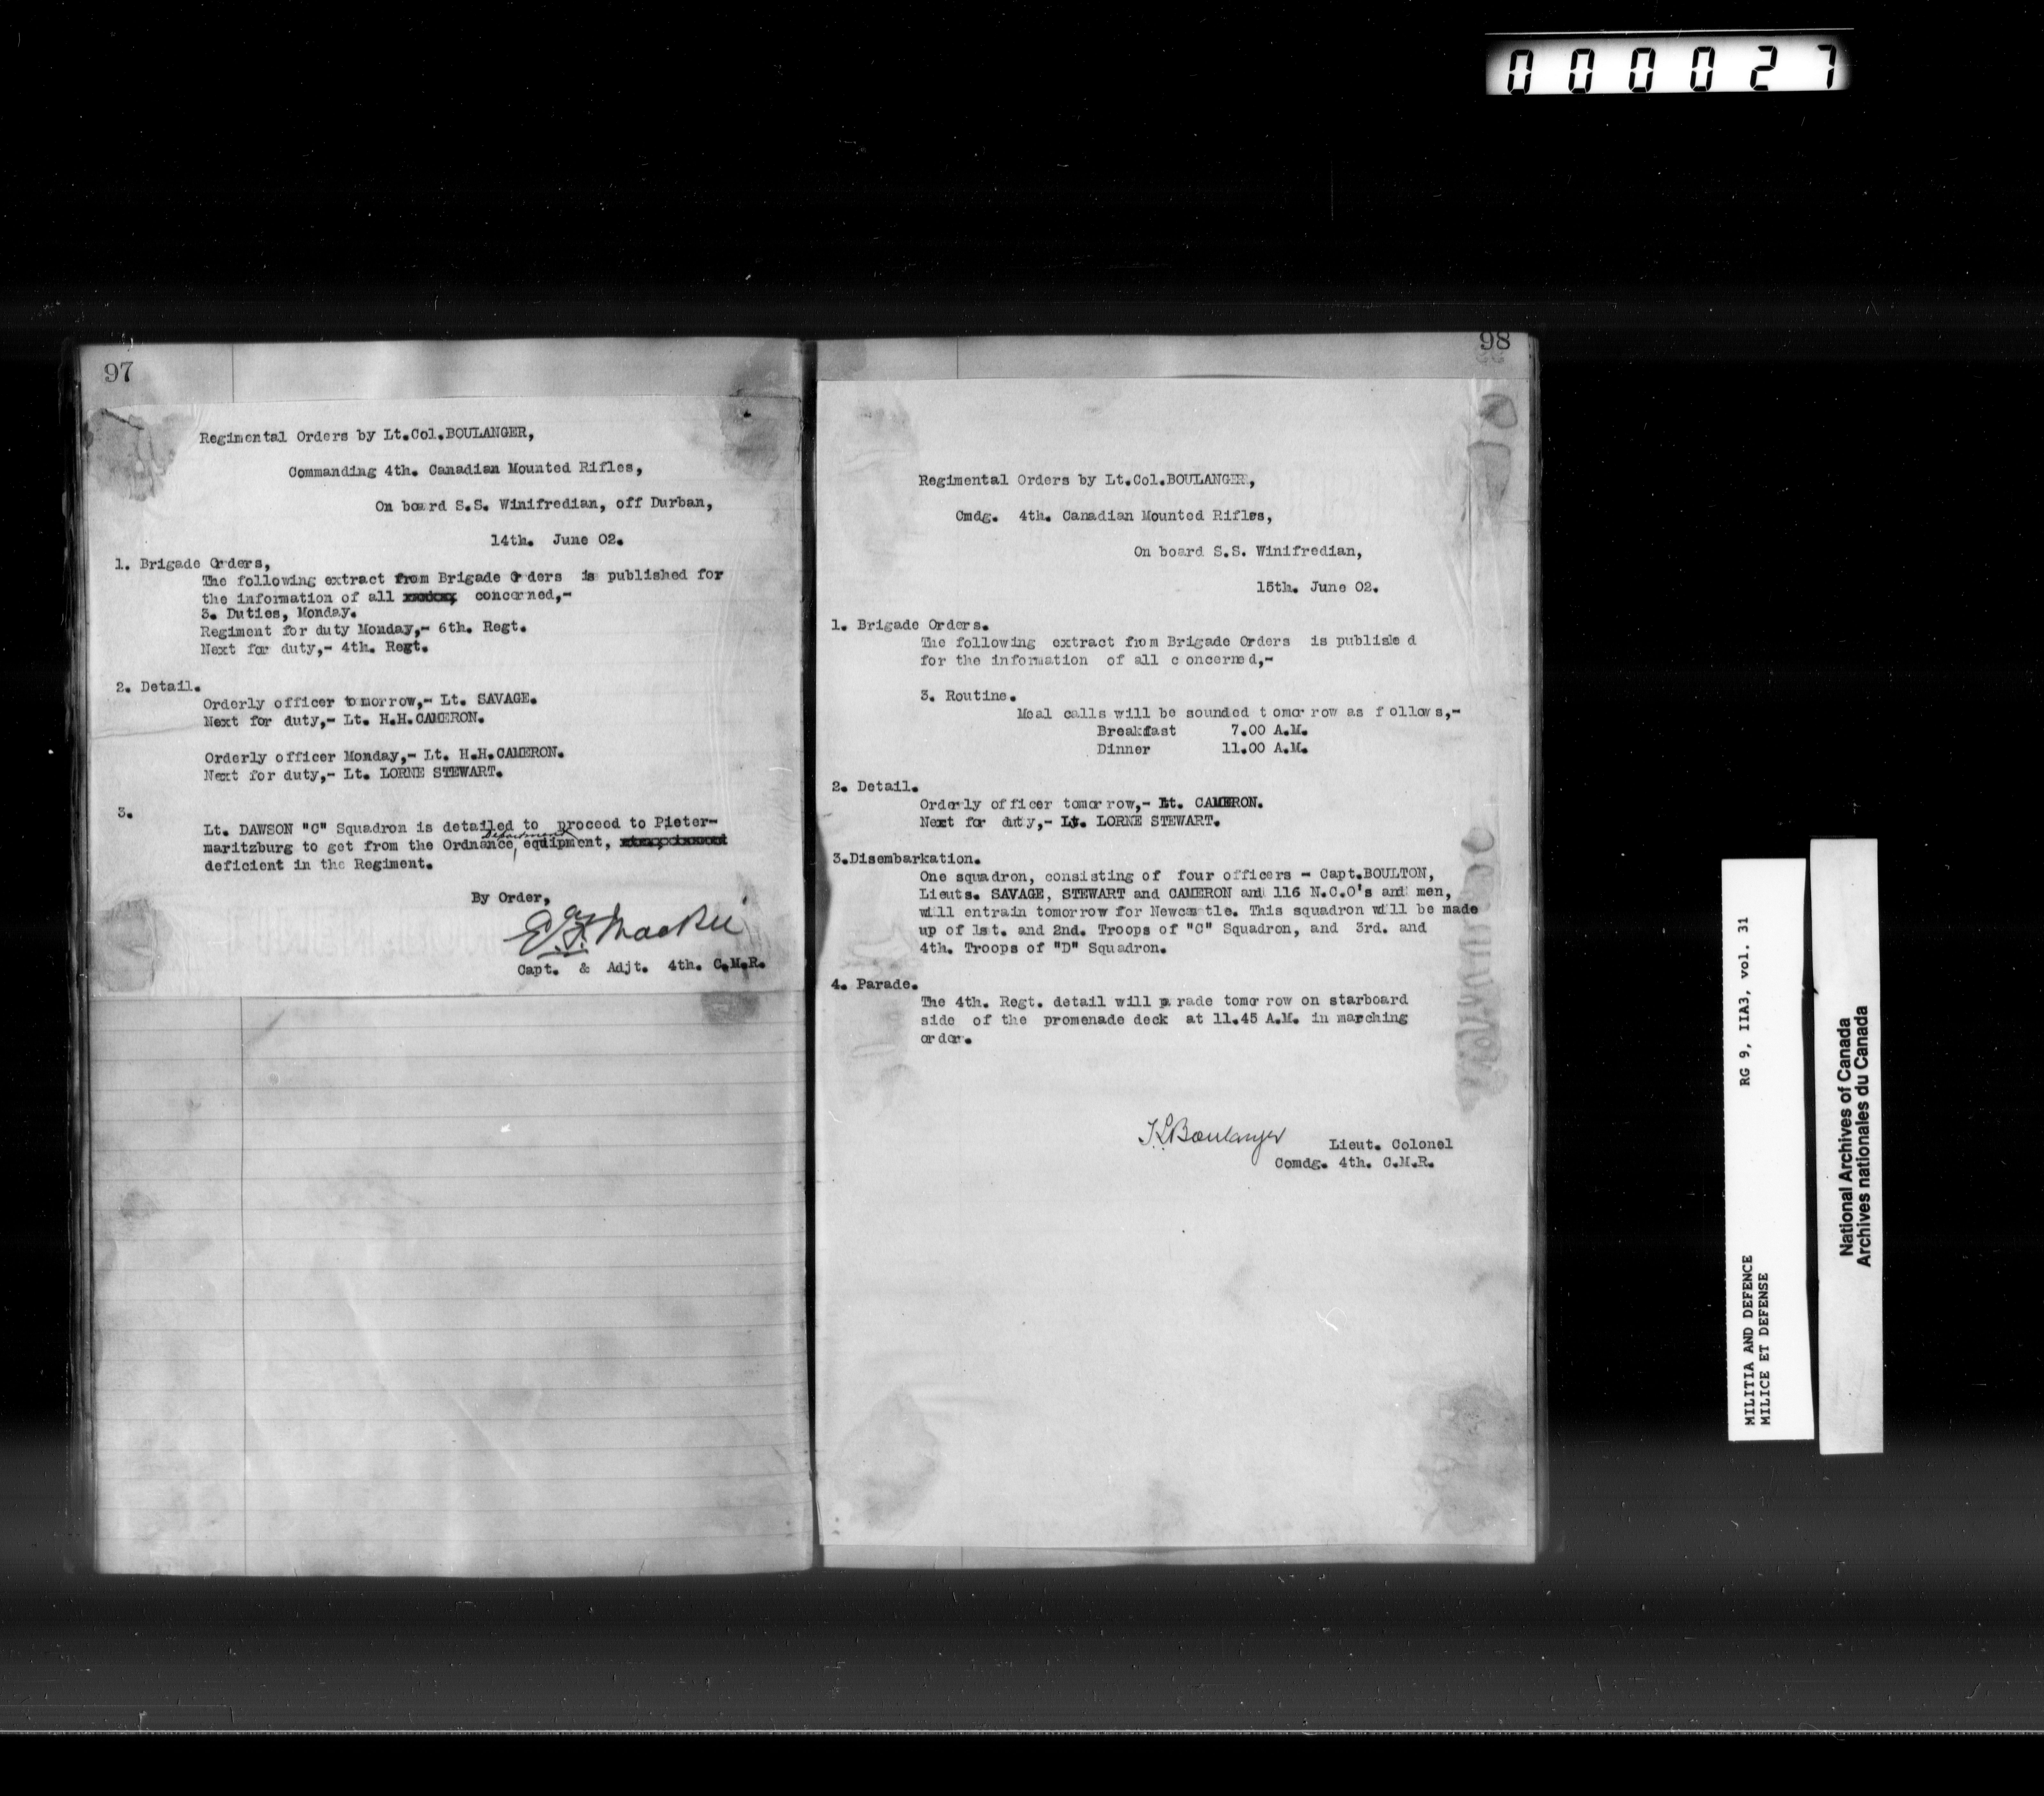 000027
97
Regimental Orders by Lt.Col.BOULANGER,
Commanding 4th. Canadian Mounted Rifles,
On board S.S. Winifredian, off Durban,
14th. June 02.
1. Brigade Orders,
The following extract from Brigade Orders is published for
the information of all concerned,-
3. Duties, Monday.
Regiment for duty Monday,- 6th. Regt.
Next for duty,- 4th. Regt.
2. Detail.
Orderly officer tomorrow,- Lt. SAVAGE.
Next for duty,- Lt. H.H.CAMERON.
Orderly officer Monday,- Lt. H.H.CAMERON.
Next for duty,- Lt. LORNE STEWART.
3.
Lt. DAWSON "C" Squadron is detailed to proceed to Pieter-
Department
maritzburg to get from the Ordnance, equipment,
deficient in the Regiment.
By Order,
Capt. & Adjt. 4th. C.M.R.
98
Regimental Orders by Lt.Col.BOULANGER,
Cmdg. 4th. Canadian Mounted Rifles,
On board S.S. Winifredian,
15th. June 02.
1. Brigade Orders.
The following extract from Brigade Orders is published
for the information of all concerned,-
3. Routine.
Meal calls will be sounded tomorrow as follows,-
Breakfast 7.00 A.M.
Dinner 11.00 A.M.
2. Detail.
Orderly officer tomorrow,- Lt. CAMERON.
Next for duty,- Lt. LORNE STEWART.
3.Disembarkation.
One squadron, consisting of four officers - Capt.BOULTON,
Lieuts. SAVAGE, STEWART and CAMERON and 116 N.C.O's and men,
will entrain tomorrow for Newcastle. This squadron will be made
up of 1st. and 2nd. Troops of "C" Squadron, and 3rd. and
4th. Troops of "D" Squadron.
4. Parade.
The 4th. Regt. detail will parade tomorrow on starboard
side of the promenade deck at 11.45 A.M. in marching
order.
Boulanger Lieut. Colonel
Comdg. 4th. C.M.R.
MILITIA AND DEFENCE RG 9, IIA3, vol. 31
MILICE ET DEFENSE
National Archives of Canada
Archives nationales du Canada